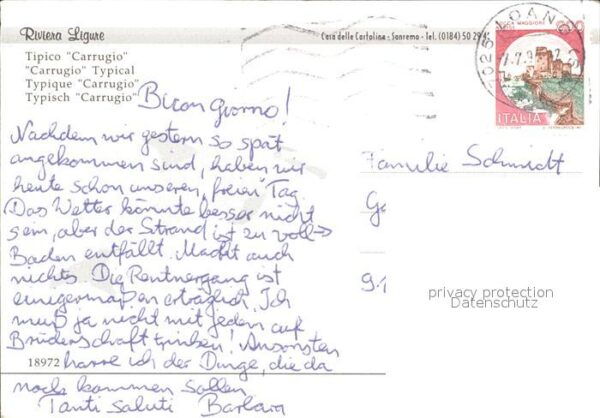 Riviera Ligure
Casa delle Cartoline - Sanremo - Tel. (0184) 50 29
Tipico "Carrugio"
"Carrugio" Typical
Typique "Carrugio"
Typisch "Carrugio"
Buon giorno!
Nachdem wir gestern so spät
angekommen sind, haben wir
heute schon unseren "freien" Tag.
Das Wetter könnte besser nicht
sein, aber der Strand ist zu voll →
Baden entfällt. Macht auch
nichts. Die Rentnergang ist
einigermaßen erträglich. Ich
muß ja nicht mit jedem auf
Brüderschaft trinken! Ansonsten
18972 harre ich der Dinge, die da
noch kommen sollen
Tanti saluti Barbara
ROCCA MAGGIORE
ITALIA
LOANO
Familie Schmidt
privacy protection
Datenschutz